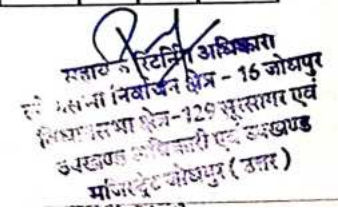 सहायक रिटर्निंग अधिकारी
लोकसभा निर्वाचन क्षेत्र - 16 जोधपुर
विधानसभा क्षेत्र-129 सूरसागर एवं
उपखण्ड अधिकारी एवं उपखण्ड
मजिस्ट्रेट जोधपुर ( उत्तर )